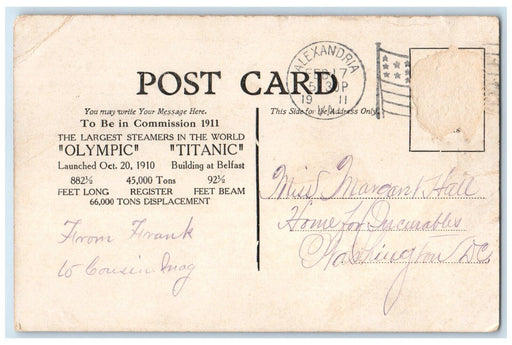 ALEXANDRIA
FEB 17
5 30P
19 11
VA.
POST CARD
You may write Your Message Here.
This Side for the Address Only.
To Be in Commission 1911
THE LARGEST STEAMERS IN THE WORLD
"OLYMPIC" "TITANIC"
Launched Oct. 20, 1910 Building at Belfast
882½ 45,000 Tons 92½
FEET LONG REGISTER FEET BEAM
66,000 TONS DISPLACEMENT
From Frank
to Cousin Mag
Miss Margant Hall
Home for Incurables
Washington DC